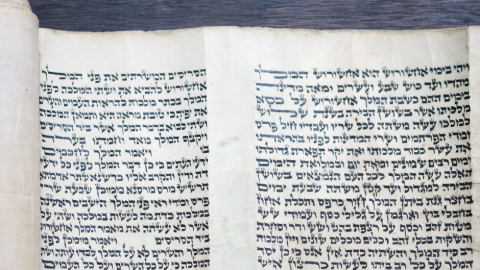 ויהי בימי אחשורוש הוא אחשורוש המלך
מהדו ועד כוש שבע ועשרים ומאה מדינה
בימים ההם כשבת המלך אחשורוש על כסא
מלכותו אשר בשושן הבירה בשנת שלוש
למלכו עשה משתה לכל שריו ועבדיו חיל פרס
ומדי הפרתמים ושרי המדינות לפניו בהראתו
את עשר כבוד מלכותו ואת יקר תפארת גדולתו
ימים רבים שמונים ומאת יום ובמלואת הימים
האלה עשה המלך לכל העם הנמצאים בשושן
הבירה למגדול ועד קטן משתה שבעת ימים
בחצר גנת ביתן המלך חור כרפס ותכלת אחוז
בחבלי בוץ וארגמן על גלילי כסף ועמודי שש
מטות זהב וכסף על רצפת בהט ושש ודר וסחרת
והשקות בכלי זהב וכלים מכלים שונים ויין מלכות
רב כיד המלך והשתיה כדת אין אנס כי כן יסד
המלך על כל רב ביתו לעשות כרצון איש
הסריסים המשרתים את פני המלך
אחשורוש להביא את ושתי המלכה לפני
המלך בכתר מלכות להראות העמים והשרים
את יפיה כי טובת מראה היא ותמאן המלכה
ושתי לבוא בדבר המלך אשר ביד הסריסים
ויקצף המלך מאד וחמתו בערה
בו ויאמר המלך לחכמים
ידעי העתים כי כן דבר המלך לפני כל
ידעי דת ודין והקרב אליו כרשנא שתר אדמתא
תרשיש מרס מרסנא ממוכן שבעת שרי
פרס ומדי ראי פני המלך הישבים ראשנה
במלכות כדת מה לעשות במלכה ושתי על
אשר לא עשתה את מאמר המלך אחשורוש
ביד הסריסים ויאמר מומכן לפני
המלך והשרים לא על המלך לבדו עותה ושתי
המלכה כי על כל השרים ועל כל העמים